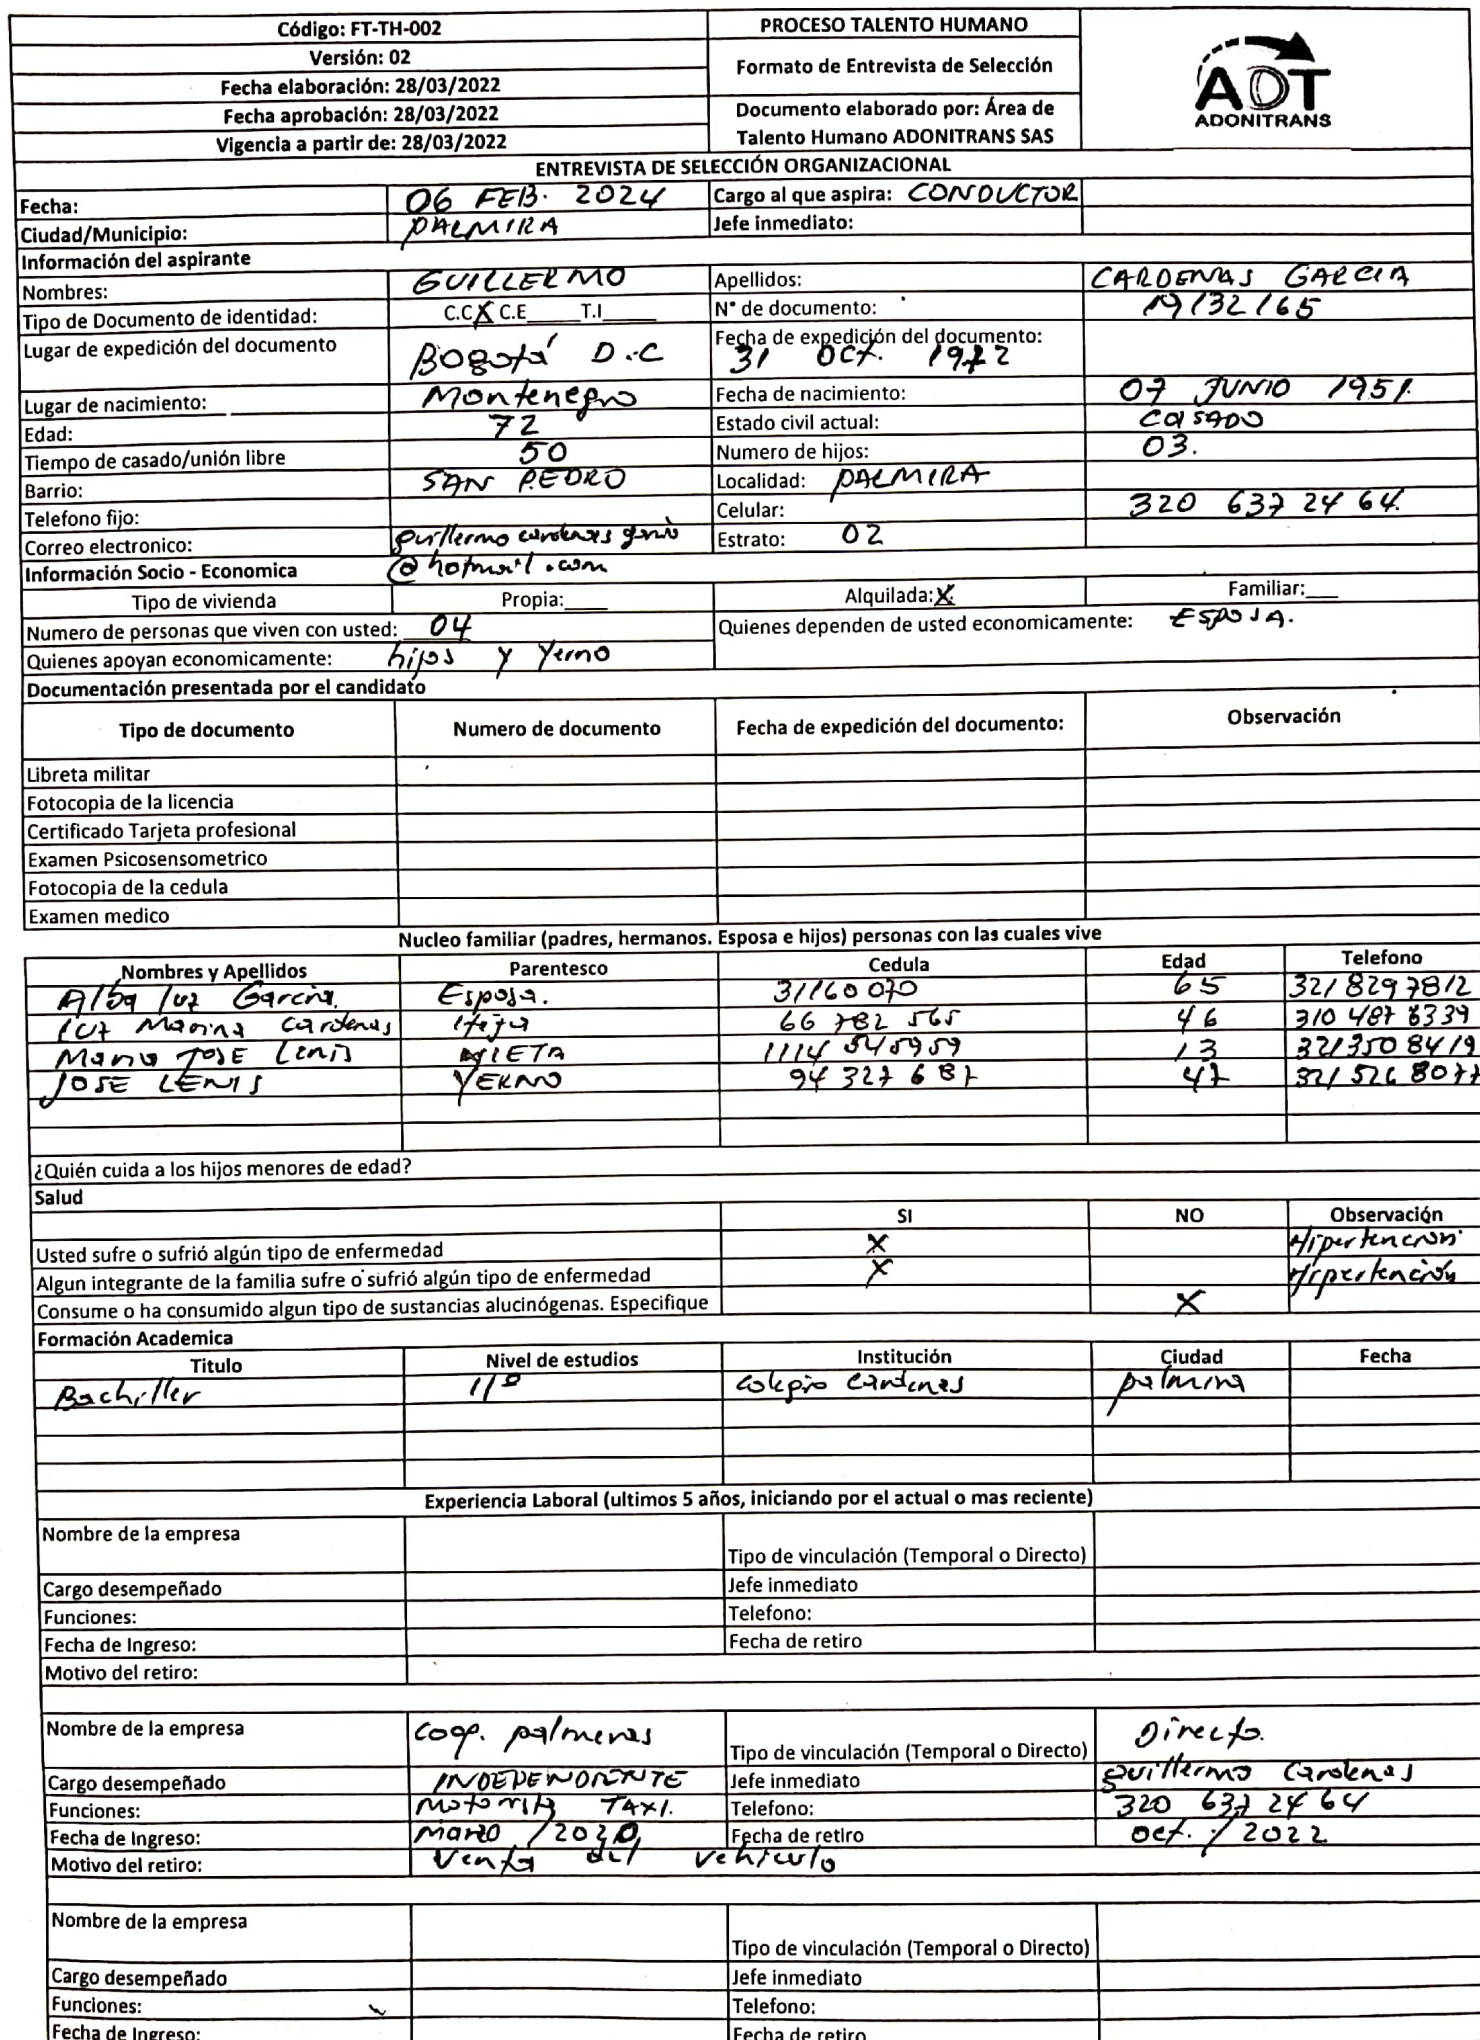 Código: FT-TH-002 PROCESO TALENTO HUMANO
Versión: 02 Formato de Entrevista de Selección
Fecha elaboración: 28/03/2022
Fecha aprobación: 28/03/2022 Documento elaborado por: Área de
Vigencia a partir de: 28/03/2022 Talento Humano ADONITRANS SAS
ADT
ADONITRANS
ENTREVISTA DE SELECCIÓN ORGANIZACIONAL
Fecha: 06 FEB. 2024 Cargo al que aspira: CONDUCTOR
Ciudad/Municipio: PALMIRA Jefe inmediato:
Información del aspirante
Nombres: GUILLERMO Apellidos: CARDENAS GARCIA
Tipo de Documento de identidad: C.C X C.E____ T.I____ N° de documento: 19132165
Lugar de expedición del documento Bogotá D.C Fecha de expedición del documento: 31 Oct. 1972
Lugar de nacimiento: Montenegro Fecha de nacimiento: 07 JUNIO 1951.
Edad: 72 Estado civil actual: CASADO
Tiempo de casado/unión libre 50 Numero de hijos: 03.
Barrio: SAN PEDRO Localidad: PALMIRA
Telefono fijo: Celular: 320 637 24 64.
Correo electronico: guillermo cardenas Estrato: 02
Información Socio - Economica @hotmail.com
Tipo de vivienda Propia:____ Alquilada: X Familiar:___
Numero de personas que viven con usted: 04 Quienes dependen de usted economicamente: ESPOSA.
Quienes apoyan economicamente: hijos y Yerno
Documentación presentada por el candidato
Tipo de documento Numero de documento Fecha de expedición del documento: Observación
Libreta militar
Fotocopia de la licencia
Certificado Tarjeta profesional
Examen Psicosensometrico
Fotocopia de la cedula
Examen medico
Nucleo familiar (padres, hermanos. Esposa e hijos) personas con las cuales vive
Nombres y Apellidos Parentesco Cedula Edad Telefono
Alba luz Garcia. Esposa. 31160070 65 321 8297812
luz Marina Cardenas 66 782 565 46 310 487 6339
Maria JOSE Lenis NIETA 1114 545959 13 321350 8419
JOSE LENIS YERNO 94 327 687 47 321 526 8077
¿Quién cuida a los hijos menores de edad?
Salud
SI NO Observación
Usted sufre o sufrió algún tipo de enfermedad X Hipertención
Algun integrante de la familia sufre o sufrió algún tipo de enfermedad X Hipertención
Consume o ha consumido algun tipo de sustancias alucinógenas. Especifique X
Formación Academica
Titulo Nivel de estudios Institución Ciudad Fecha
Bachiller 11º colegio Cardenas palmira
Experiencia Laboral (ultimos 5 años, iniciando por el actual o mas reciente)
Nombre de la empresa Tipo de vinculación (Temporal o Directo)
Cargo desempeñado Jefe inmediato
Funciones: Telefono:
Fecha de Ingreso: Fecha de retiro
Motivo del retiro:
Nombre de la empresa coop. palmeras Tipo de vinculación (Temporal o Directo) Directo.
Cargo desempeñado INDEPENDIENTE Jefe inmediato guillermo Cardenas
Funciones: Motorista TAXI. Telefono: 320 637 24 64
Fecha de Ingreso: Marzo /2020 Fecha de retiro oct. / 2022
Motivo del retiro: Venta del vehiculo
Nombre de la empresa Tipo de vinculación (Temporal o Directo)
Cargo desempeñado Jefe inmediato
Funciones: Telefono:
Fecha de Ingreso: Fecha de retiro